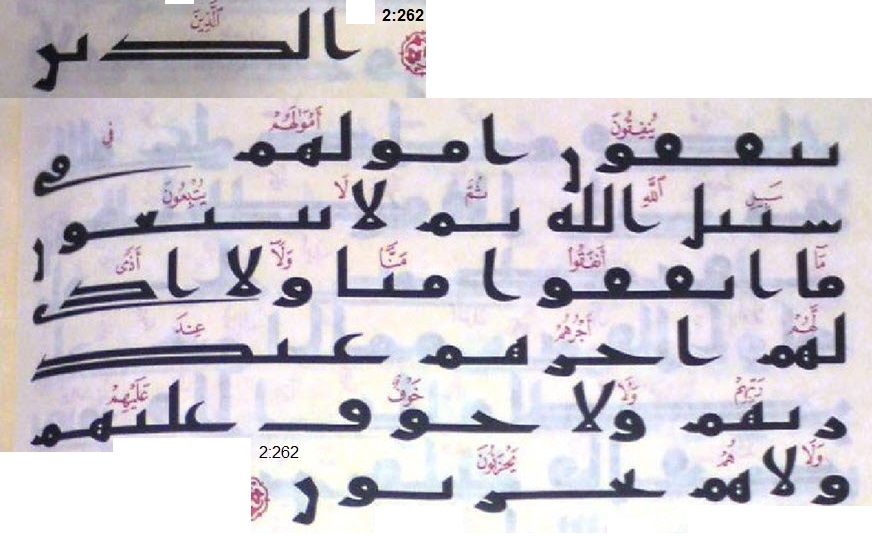 2:262
ٱلَّذِينَ
الذين
يُنفِقُونَ أَمْوَٰلَهُمْ فِي
ينفقون امولهم في
سَبِيلِ ٱللَّهِ ثُمَّ لَا يُتْبِعُونَ
سبيل الله ثم لا يتبعون
مَآ أَنفَقُوا۟ مَنًّا وَلَآ أَذًى
ما انفقوا منا ولا اذى
لَّهُمْ أَجْرُهُمْ عِندَ
لهم اجرهم عند
رَبِّهِمْ وَلَا خَوْفٌ عَلَيْهِمْ
ربهم ولا خوف عليهم
2:262
وَلَا هُمْ يَحْزَنُونَ
ولا هم يحزنون